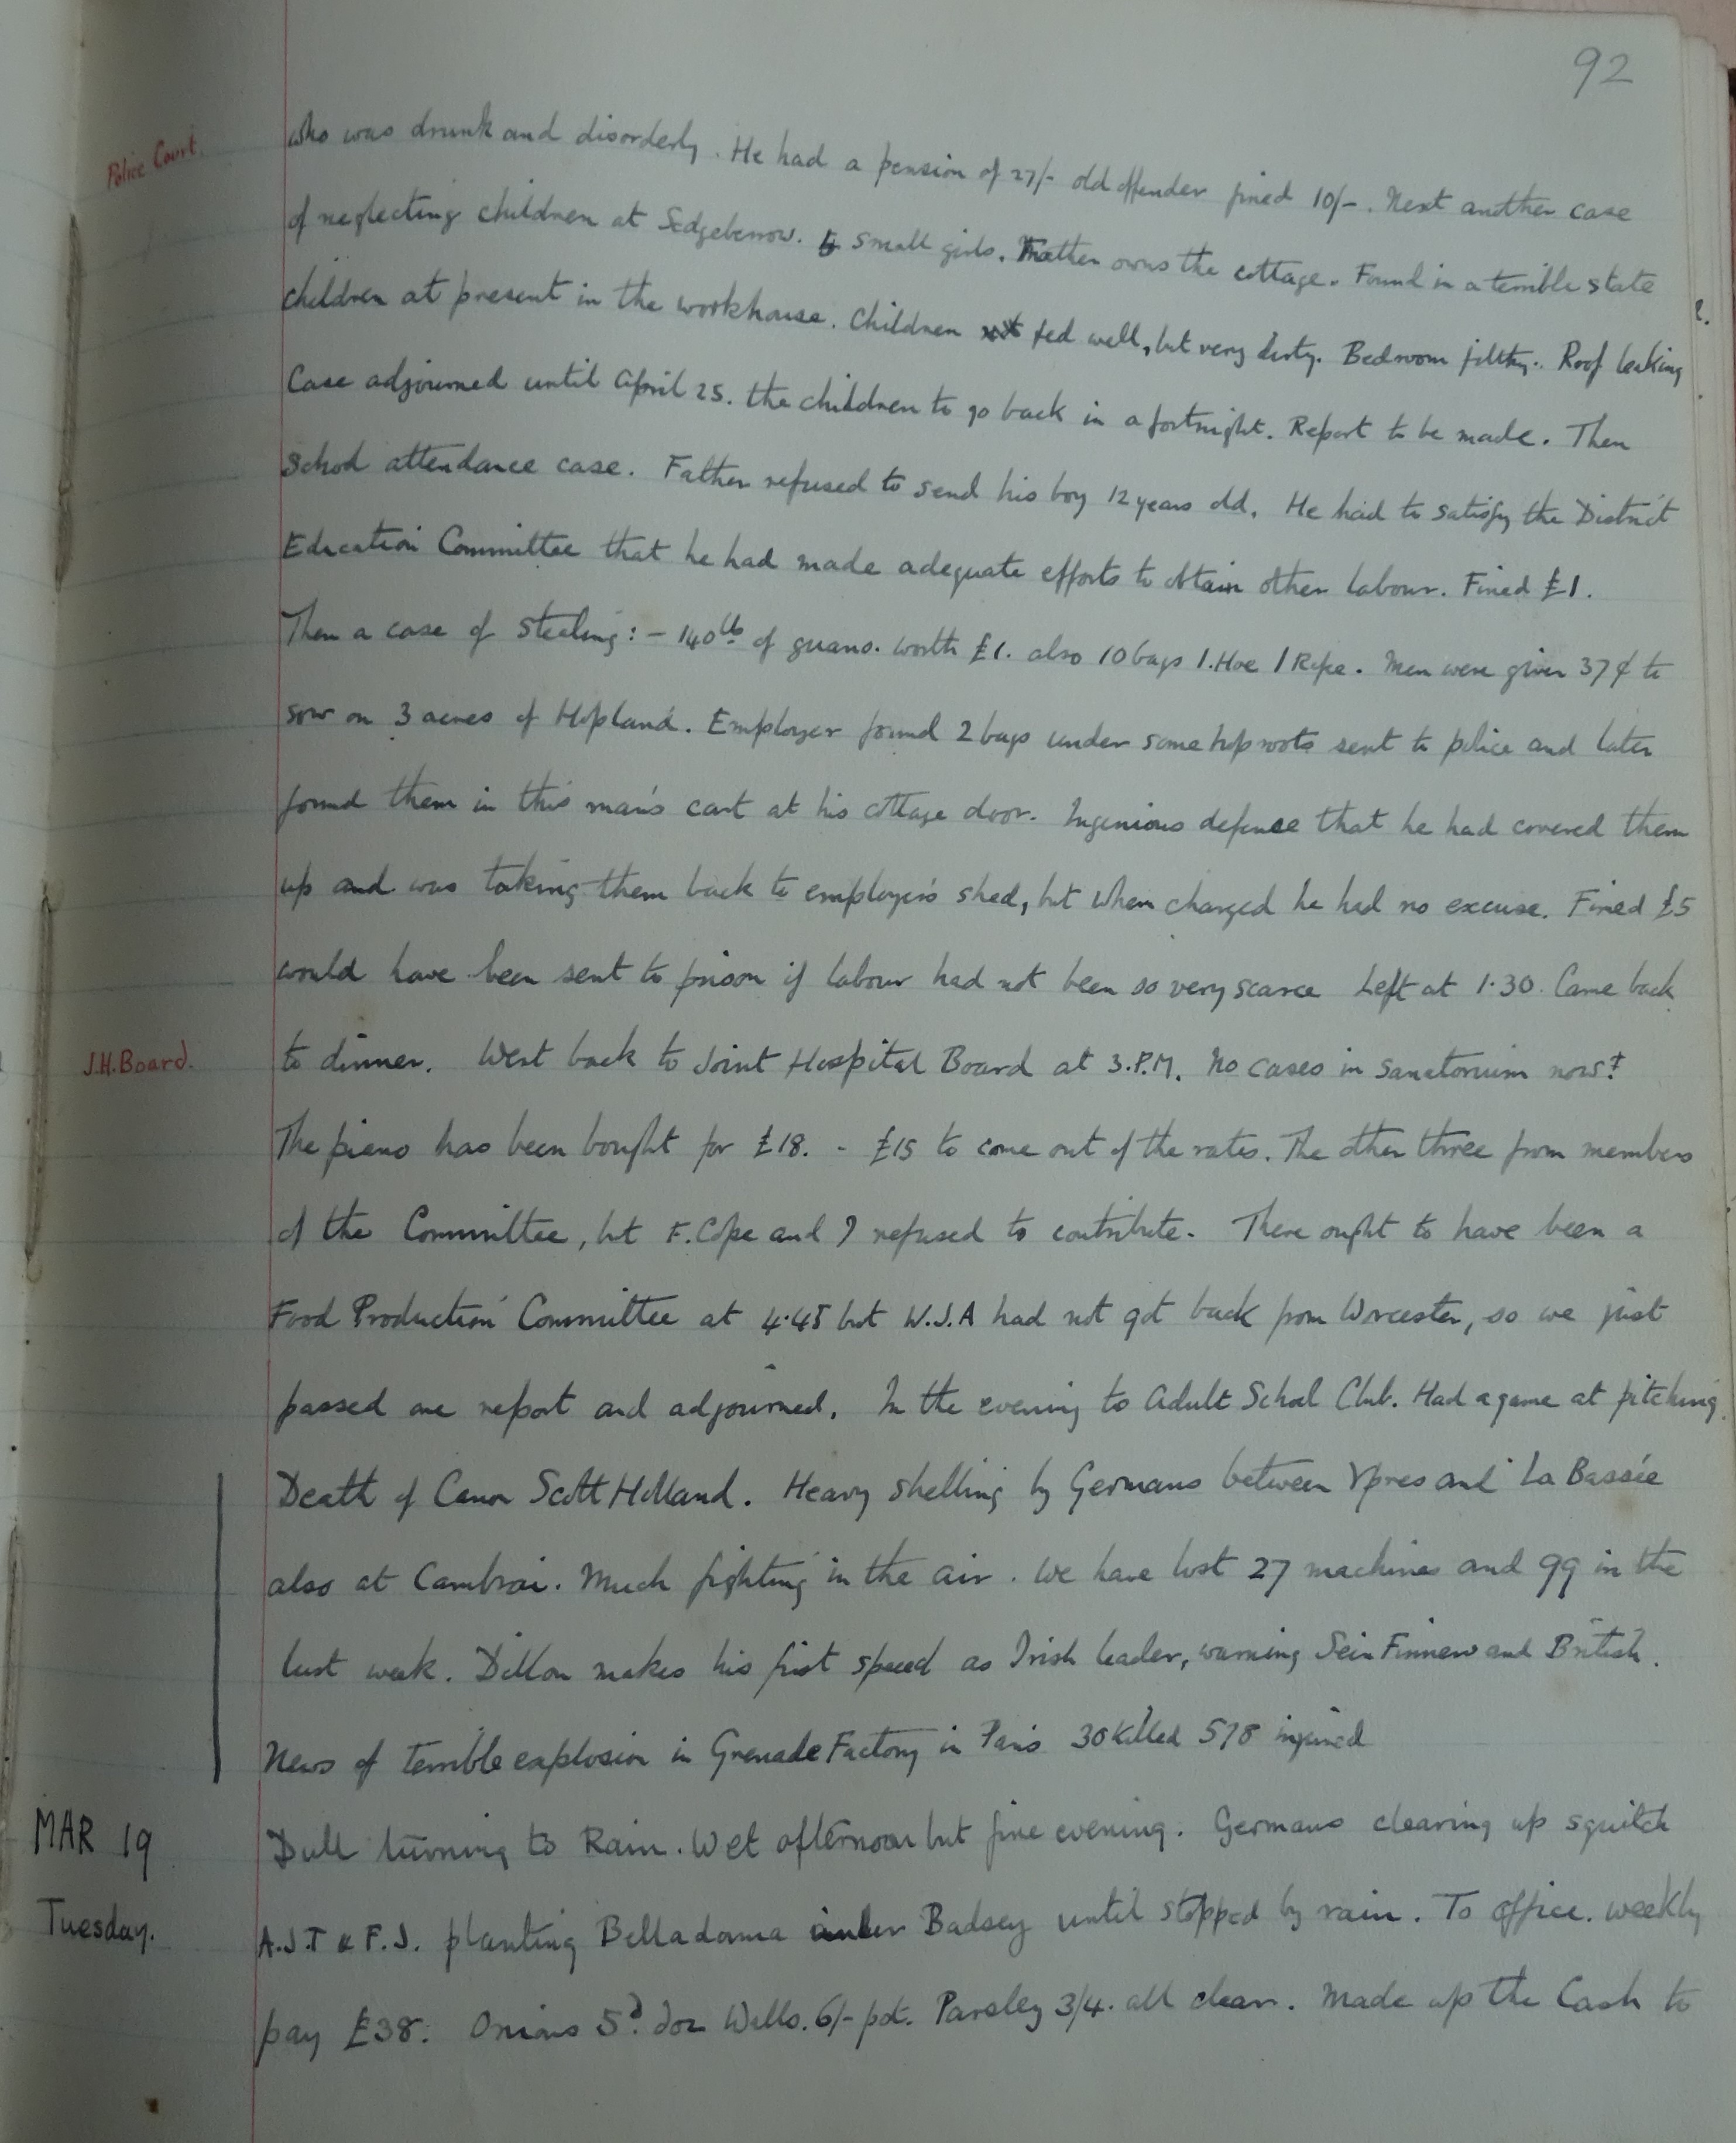 92
Police Court.
who was drunk and disorderly. He had a pension of 27/- old offender fined 10/-. Next another case
of neglecting children at Sedgeberrow. 5 small girls. Mother owns the cottage. Found in a terrible state
children at present in the workhouse. Children fed well, but very dirty. Bedroom filthy. Roof leaking
Case adjourned until April 25. the children to go back in a fortnight. Report to be made. Then
School attendance case. Father refused to send his boy 12 years old. He had to satisfy the District
Education Committee that he had made adequate efforts to obtain other labour. Fined £1.
Then a case of stealing:- 140lbs of guano. worth £1. also 10 bags 1. Hoe 1 Rope. Men were given 37 to
sow on 3 acres of Hopland. Employer found 2 bags under some hop roots sent to police and later
found them in this man's cart at his cottage door. Ingenious defence that he had covered them
up and was taking them back to employer's shed, but when charged he had no excuse. Fined £5
would have been sent to prison if labour had not been so very scarce Left at 1.30. Came back
J.H. Board.
to dinner. Went back to Joint Hospital Board at 3.P.M. No cases in Sanatorium now!
The piano has been bought for £18. - £15 to come out of the rates. The other three from members
of the Committee, but F. Cope and I refused to contribute. There ought to have been a
Food Production Committee at 4.45 but W.J.A had not got back from Worcester, so we just
passed one report and adjourned. In the evening to Adult School Club. Had a game at pitching.
Death of Canon Scott Holland. Heavy shelling by Germans between Ypres and La Bassée
also at Cambrai. Much fighting in the air. We have lost 27 machines and 99 in the
last week. Dillon makes his first speed as Irish leader, warning Sein Finners and British.
News of terrible explosion in Grenade Factory in Paris 30 killed 578 injured
MAR 19
Tuesday.
Dull turning to Rain. Wet afternoon but fine evening. Germans clearing up squitch
A.J.T & F.J. planting Belladonna under Badsey until stopped by rain. To office. weekly
pay £38. Onions 5d. doz Wells. 6/- pot. Parsley 3/4. all clear. Made up the Cash to